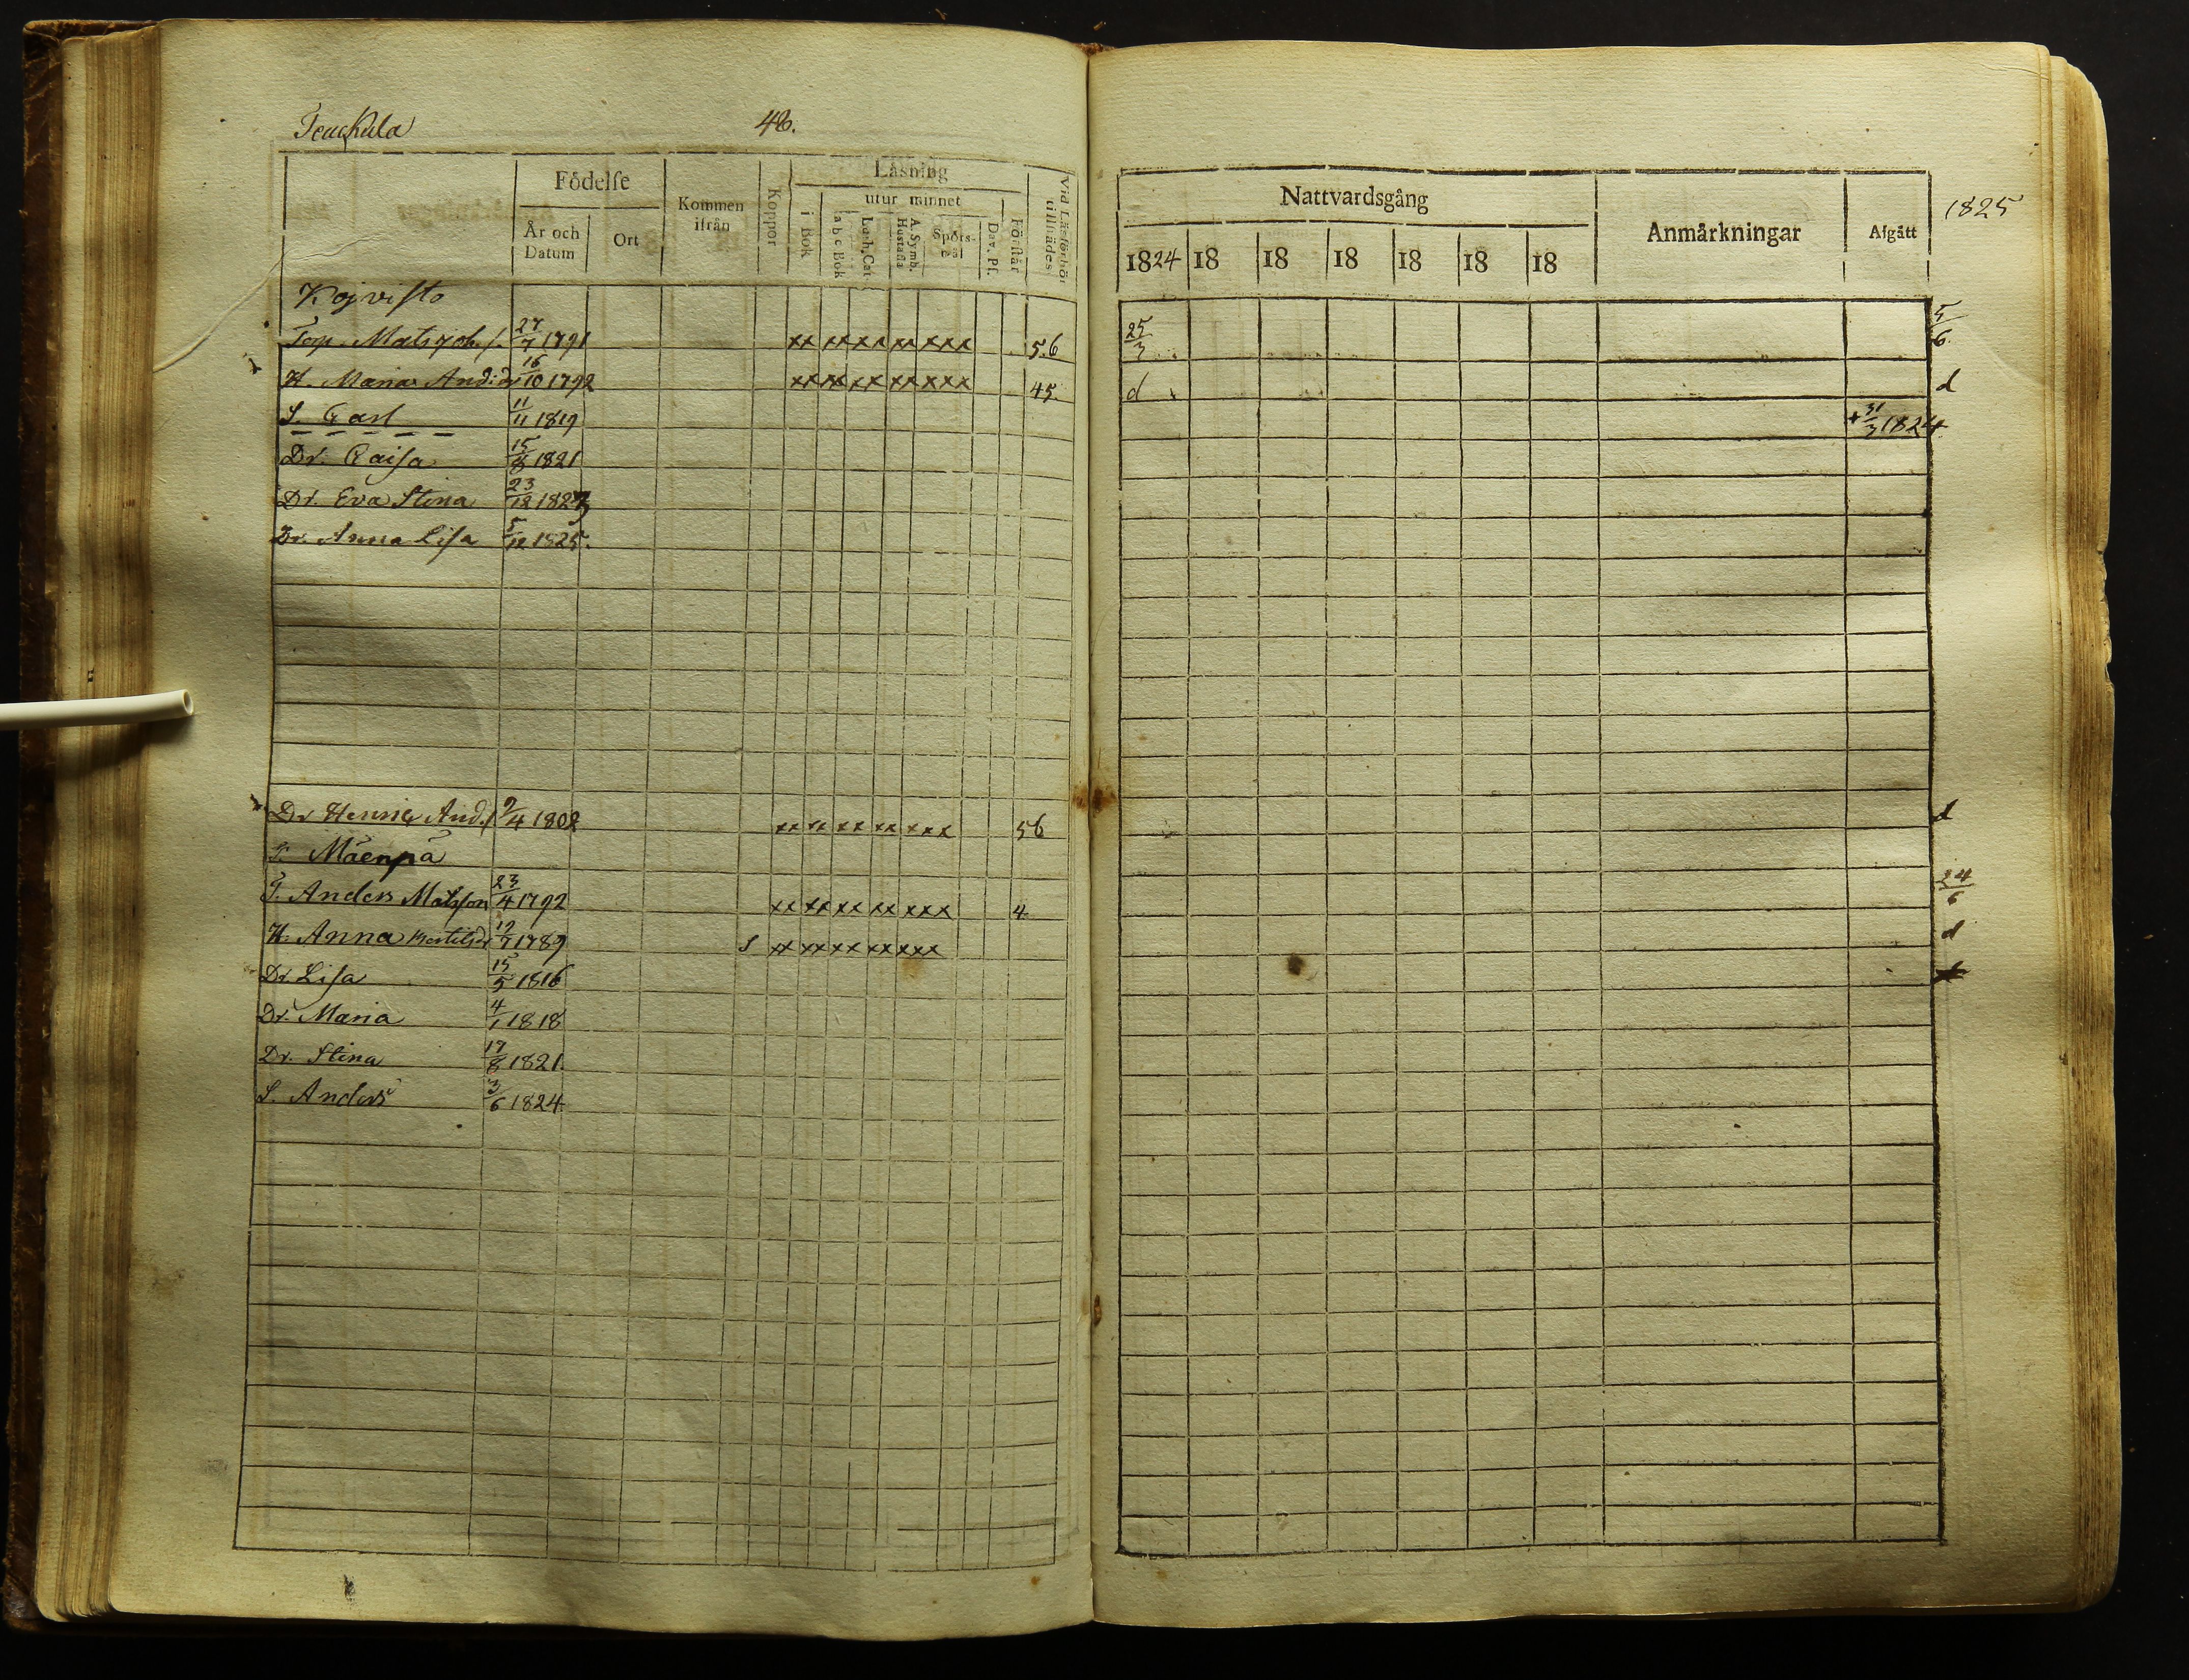 48.
Födelse
År och Datum
Ort
Kommen ifrån
Koppor
Läsning
i Bok
utur minnet
a b c Bok
Luth. Cat.
A. Symb. Hustafla
Spörs-mål
Dav. Ps.
Förstår
Vid Läsförhör tillstädes
Nattvardsgång
1824 18 18 18 18 18 18
Anmärkningar
Afgått
1825
Kojvisto
Torp. Mats Joh. s. 27/7 1791 xx xx xx xx xxx 5.6 25/3 5/6.
H. Maria And:dr 16/10 1792 xx xx xx xx xxx 45. d d
S. Carl 11/11 1819 + 31/3 1824
Dr. Caisa 15/8 1821
Dr. Eva Stina 23/12 1823
Dr. Anna Lisa 5/12 1825.
Dr Henric And. s 9/4 1802 xx xx xx xx xxx 56 d
T. Mäenpä
T. Anders Matsson 23/4 1792 xx xx xx xx xxx 4 24/6
H. Anna Bertilsdr 12/7 1789 S xx xx xx xx xxx d
Dr. Lisa 15/5 1816
Dr. Maria 4/1 1818
Dr. Stina 17/8 1821.
S. Anders 3/6 1824